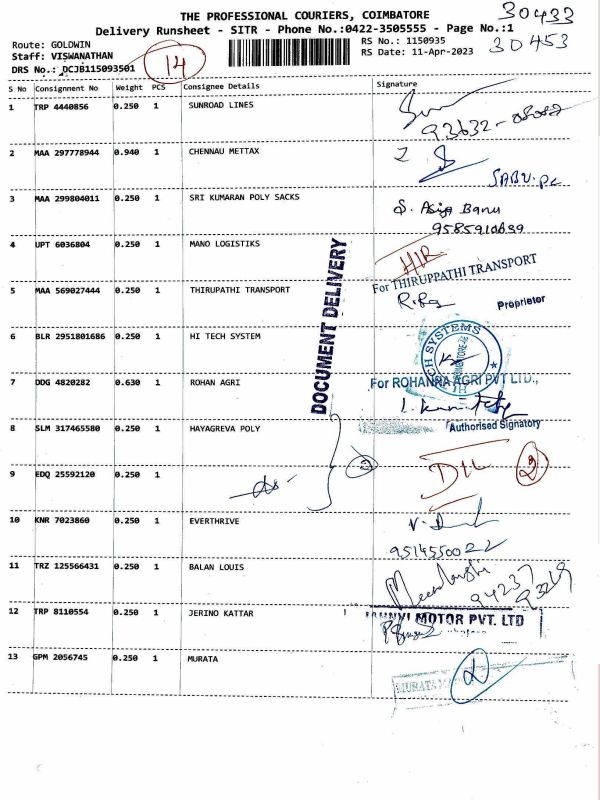 THE PROFESSIONAL COURIERS, COIMBATORE
30433
Delivery Runsheet - SITR - Phone No.:0422-3505555 - Page No.:1
Route: GOLDWIN
RS No.: 1150935
30453
Staff: VISWANATHAN
14
RS Date: 11-Apr-2023
DRS No.: DCJB115093501
S No Consignment No Weight PCS Consignee Details Signature
1 TRP 4440856 0.250 1 SUNROAD LINES
2 MAA 297778944 0.940 1 CHENNAU METTAX
3 MAA 299804011 0.250 1 SRI KUMARAN POLY SACKS
S. Asiya Banu
4 UPT 6036804 0.250 1 MANO LOGISTIKS
For THIRUPPATHI TRANSPORT
5 MAA 569027444 0.250 1 THIRUPATHI TRANSPORT
Proprietor
DOCUMENT DELIVERY
6 BLR 2951801686 0.250 1 HI TECH SYSTEM
7 DDG 4820282 0.630 1 ROHAN AGRI
For ROHANRA AGRI PVT LTD.,
8 SLM 317465580 0.250 1 HAYAGREVA POLY
Authorised Signatory
2
9 EDQ 25592120 0.250 1
10 KNR 7023860 0.250 1 EVERTHRIVE
9514550022
11 TRZ 125566431 0.250 1 BALAN LOUIS
12 TRP 8110554 0.250 1 JERINO KATTAR
MOTOR PVT. LTD
13 GPM 2056745 0.250 1 MURATA
MURATA